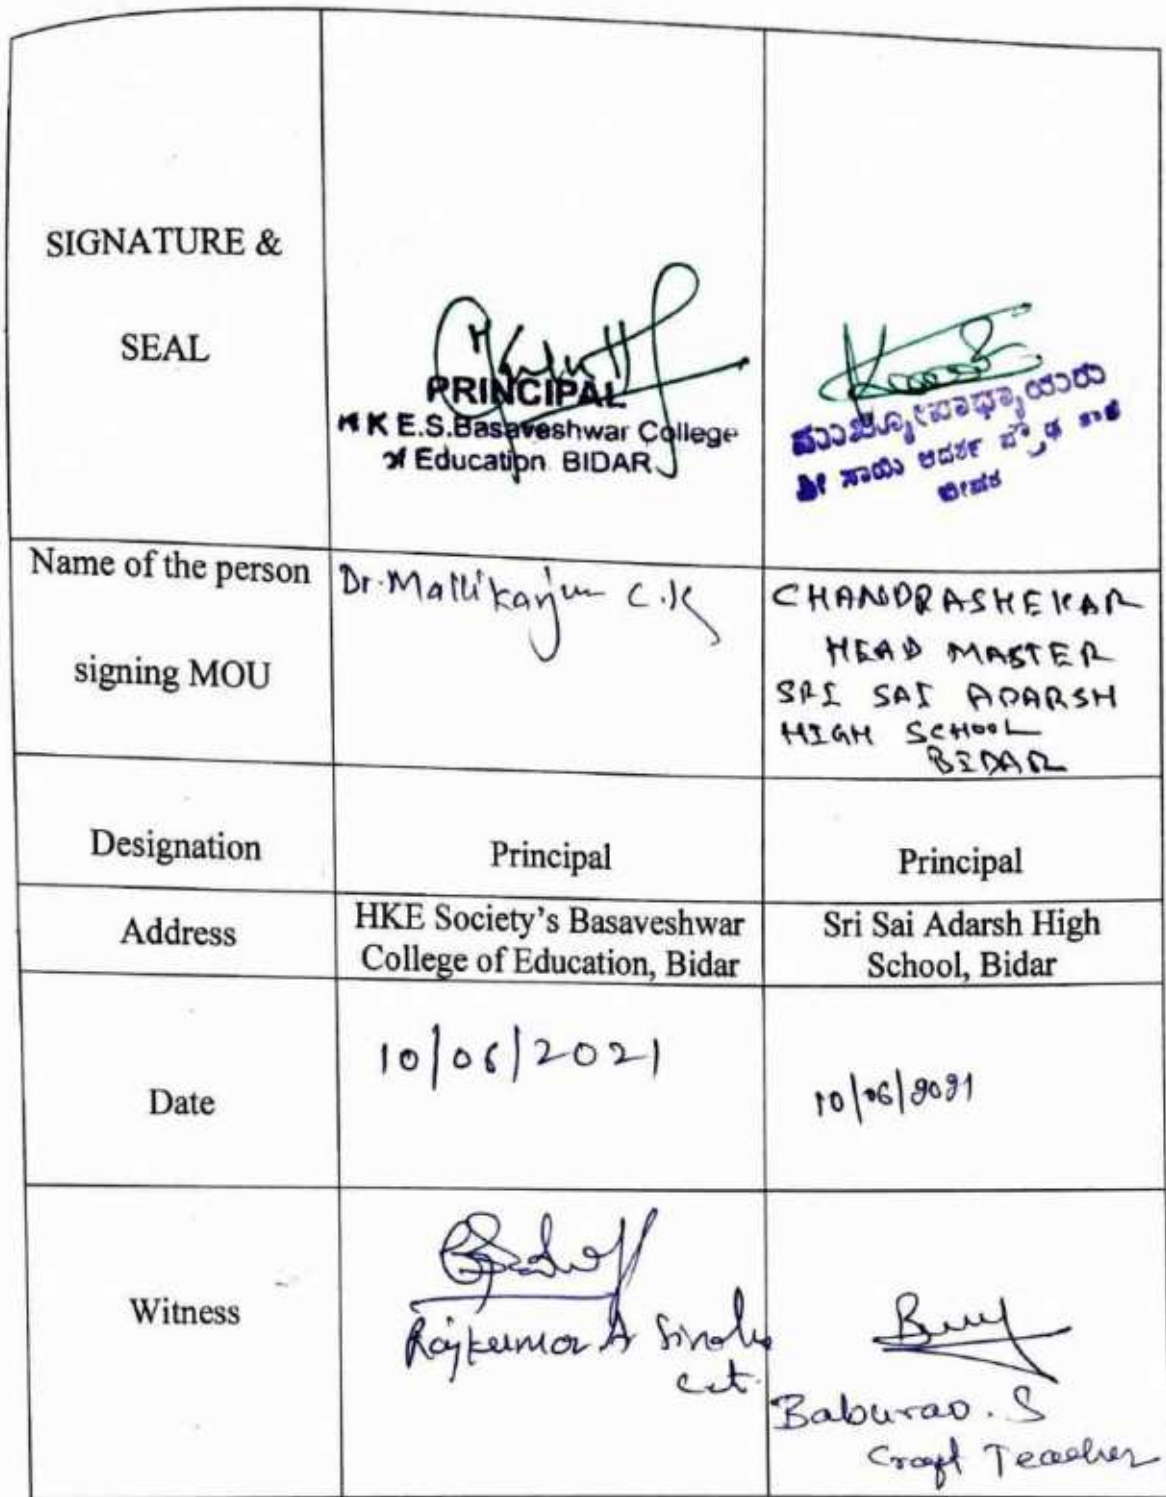 SIGNATURE &
SEAL
PRINCIPAL
H K E.S.Basaveshwar College
of Education BIDAR
ಮುಖ್ಯೋಪಾಧ್ಯಾಯರು
ಶ್ರೀ ಸಾಯಿ ಆದರ್ಶ ಪ್ರೌಢ ಶಾಲೆ
ಬೀದರ
Name of the person
signing MOU
Dr. Mallikarjun C.K
CHANDRASHEKAR
HEAD MASTER
SRI SAI ADARSH
HIGH SCHOOL
BIDAR
Designation
Principal
Principal
Address
HKE Society's Basaveshwar
College of Education, Bidar
Sri Sai Adarsh High
School, Bidar
Date
10/06/2021
10/06/2021
Witness
Rajkumar A
Baburao. S
Craft Teacher